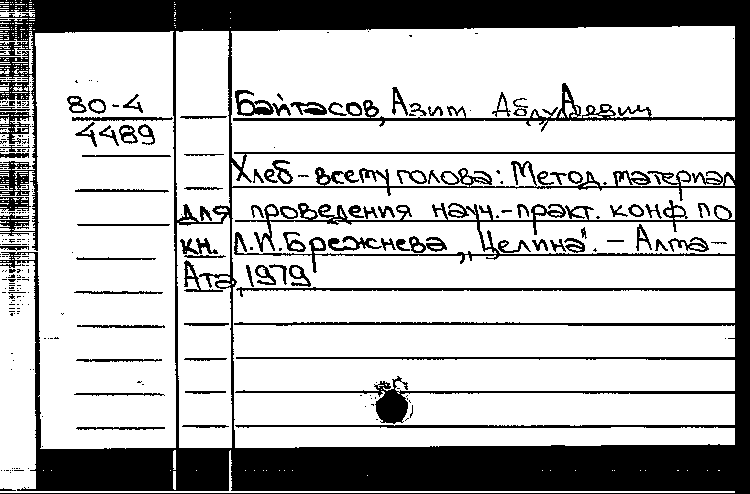 80-4
4489
Байтасов, Азим
Хлеб - всему голова: Метод. материал
для проведения науч.-практ. конф. по
кн. Л.И.Брежнева „Целина". - Алма-
Ата, 1979